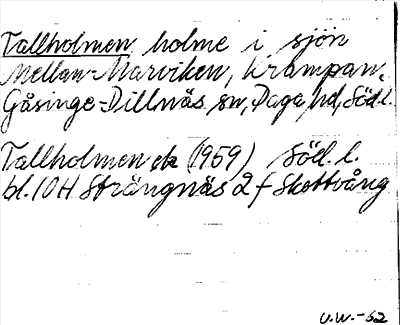 Tallholmen holme i sjön
Mellan-Marviken, Krampan,
Gåsinge-Dillnäs sn, Daga hd, Södl.
Tallholmen ek (1959) Södl. l.
bl. 10H Strängnäs 2 f Skottvång
U.W.-62